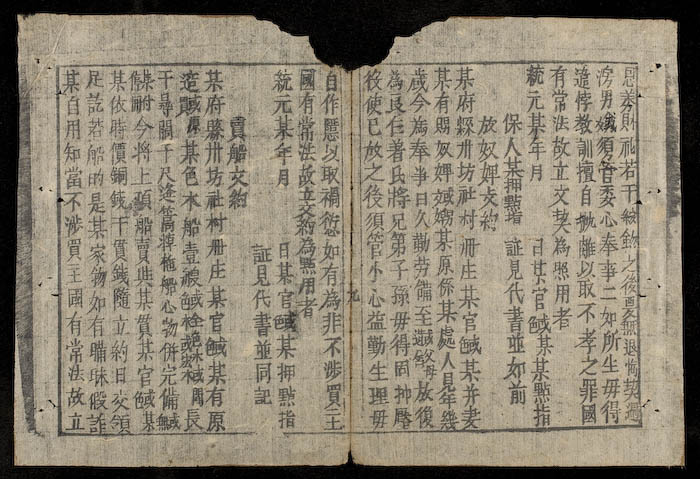 恩养財礼若干之後更無退悔契還
男須各委心奉事一如所生毋得
違悖教訓擅自抛離以取不孝之罪國
有常法故立文契為照用者
統元某年月 日某官職某某點指
保人某押點指 証見代書並如前
放奴婢文約
某府縣州坊社村冊庄某官職某并妻
某有賜奴婢或某原係某處人見年幾
歲今為奉事日久勤劳備至遂放後
為良任著氏將兄弟子孫毋得固抑壓
後使已放之後須管小心益勤生理毋
九
自作慝以取禍愆如有為非不涉買主
國有常法故立文約為照用者
統元某年月 日某官職某押點指
証見代書並同記
賣船文約
某府縣州坊社村冊庄某官職某有原
造或買某色木船壹艘長
干尋闊干尺篙棹物併完備
今將上項船賣與某質某官職某
某依時價銅錢干貫錢隨立約日交領
足訖若船的是某家物如有瞞昧假詐
某自用知當不涉買主國有常法故立